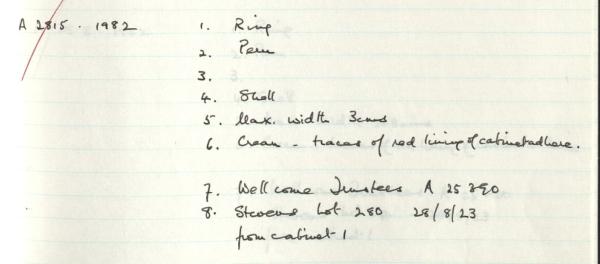 A 2815 . 1982 1. Ring
2. Peru
3.
4. Shell
5. Max. width 3cms
6. Cream - traces of red lining of cabinet adhere.
7. Wellcome Trustees A 25390
8. Stevens Lot 280 28/8/23
from cabinet 1